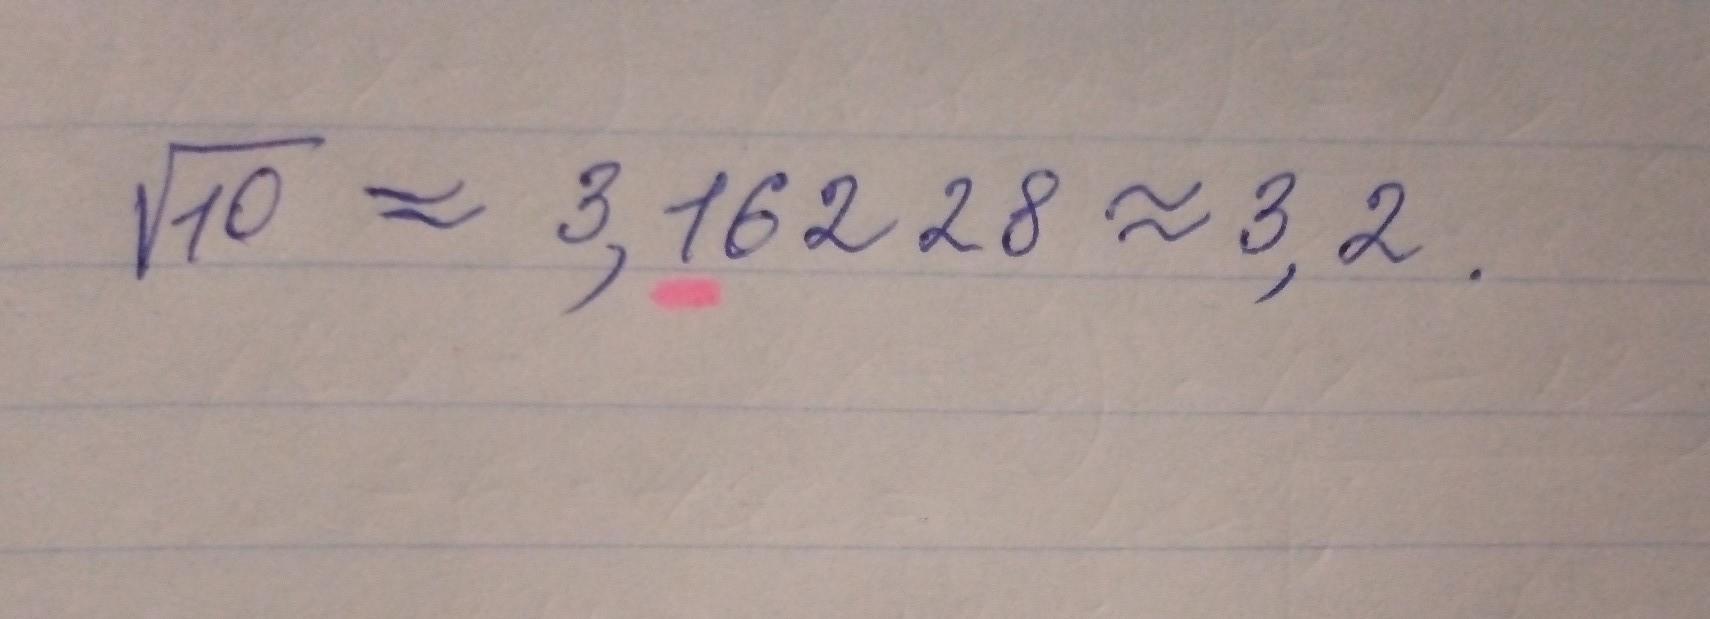 √10 ≈ 3,16228 ≈ 3,2.